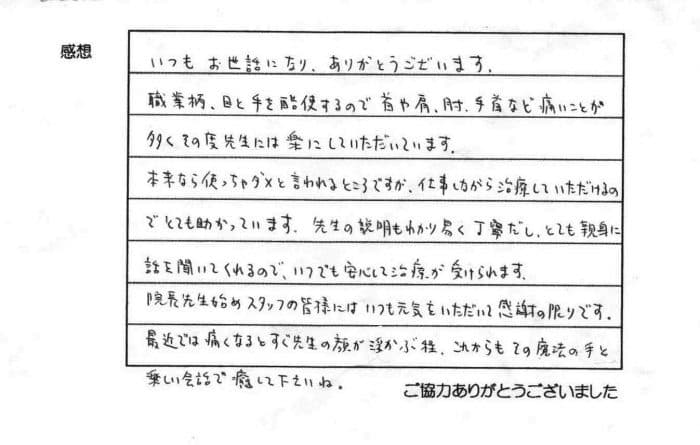 感想
いつも お世話になり、ありがとうございます。
職業柄、目と手を酷使するので 首や肩、肘、手首など 痛いことが
多く その度先生には 楽にしていただいています。
本来なら使っちゃダメと言われるところですが、仕事しながら治療していただけるの
で とても助かっています。先生の説明もわかり易く丁寧だし、とても親身に
話を聞いてくれるので、いつでも安心して治療が受けられます。
院長先生始めスタッフの皆様には いつも元気をいただいて感謝の限りです。
最近では 痛くなるとすぐ先生の顔が浮かぶ程、これからも その魔法の手と
楽しい会話で 癒して下さいね。
ご協力ありがとうございました